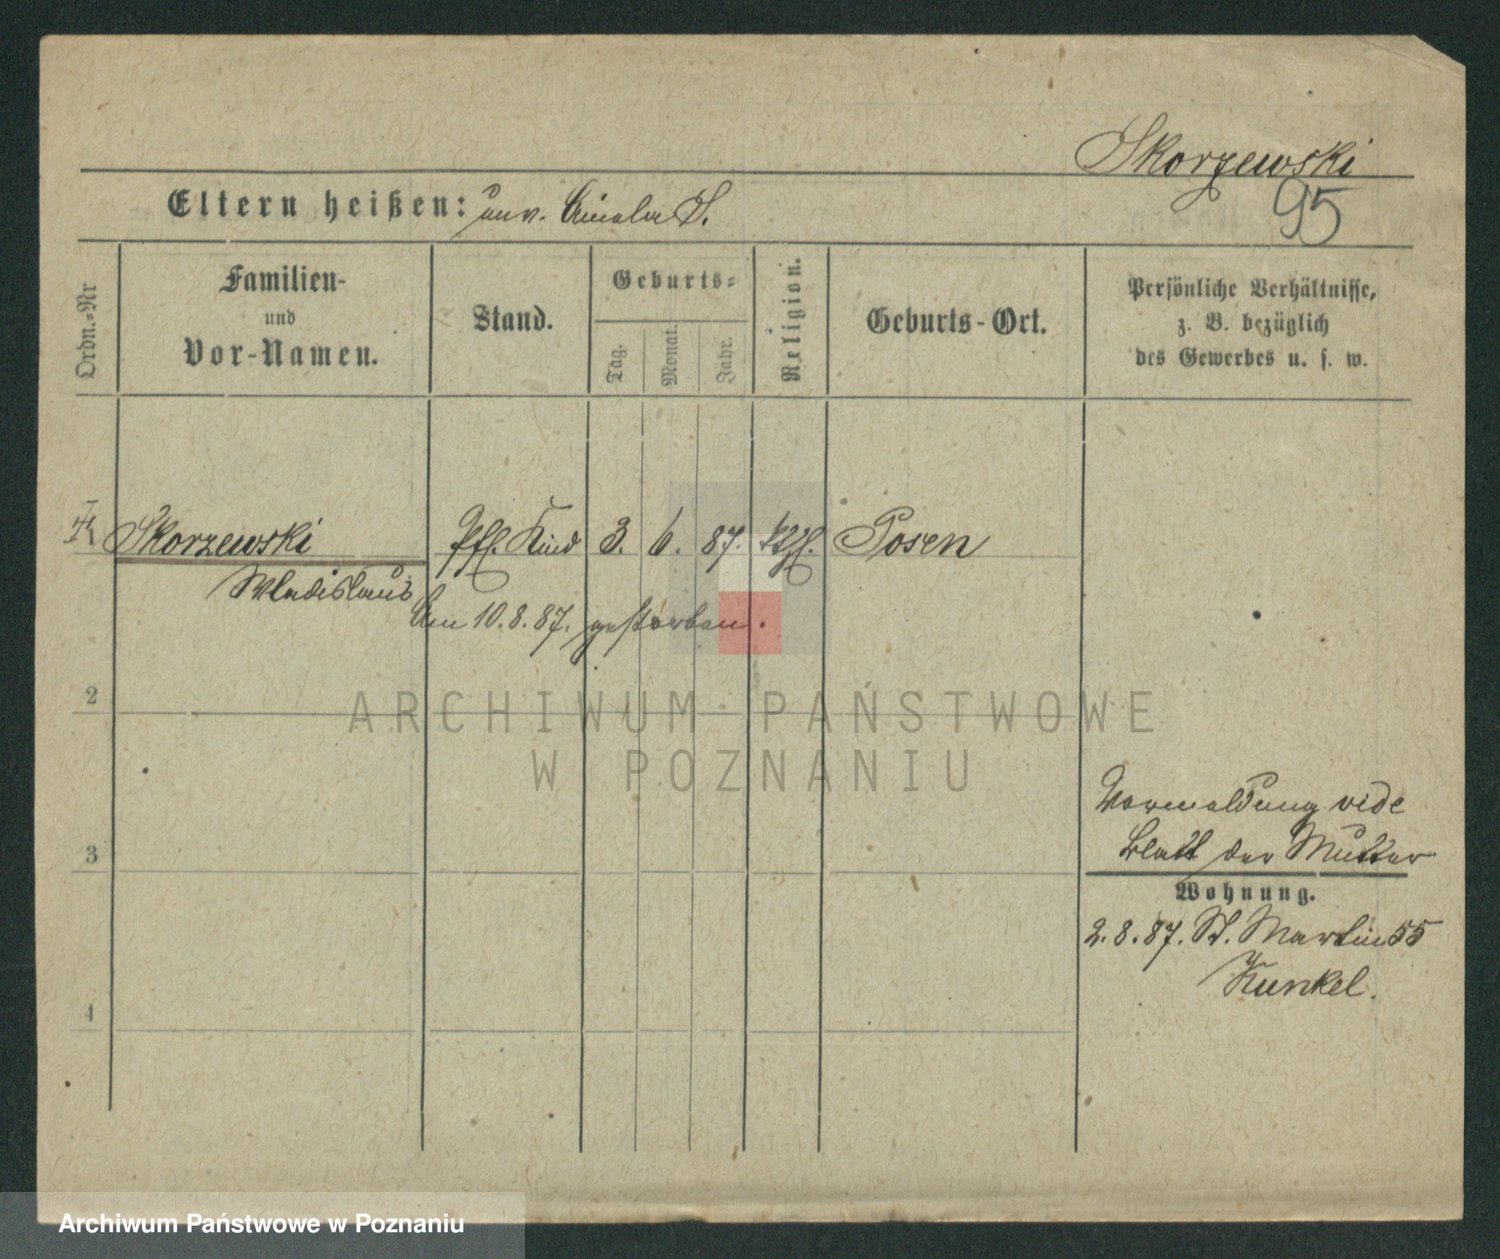 Skorzewski
95
Eltern heißen: unv. Aniela S.
Ordn.-Nr
Familien-
und
Vor-Namen.
Stand.
Geburts-
Tag.
Monat.
Jahr.
Religion.
Geburts-Ort.
Persönliche Verhältnisse,
z. B. bezüglich
des Gewerbes u. s. w.
Skorzewski Pfl. Kind 3. 6. 87. kth. Posen
Wladislaus
Am 10.8.87. gestorben.
2
ARCHIWUM PAŃSTWOWE
W POZNANIU
Vormeldung vide
3
Blatt der Mutter
Wohnung.
2.8.87. St. Martin 55
Kunkel.
4
Archiwum Państwowe w Poznaniu